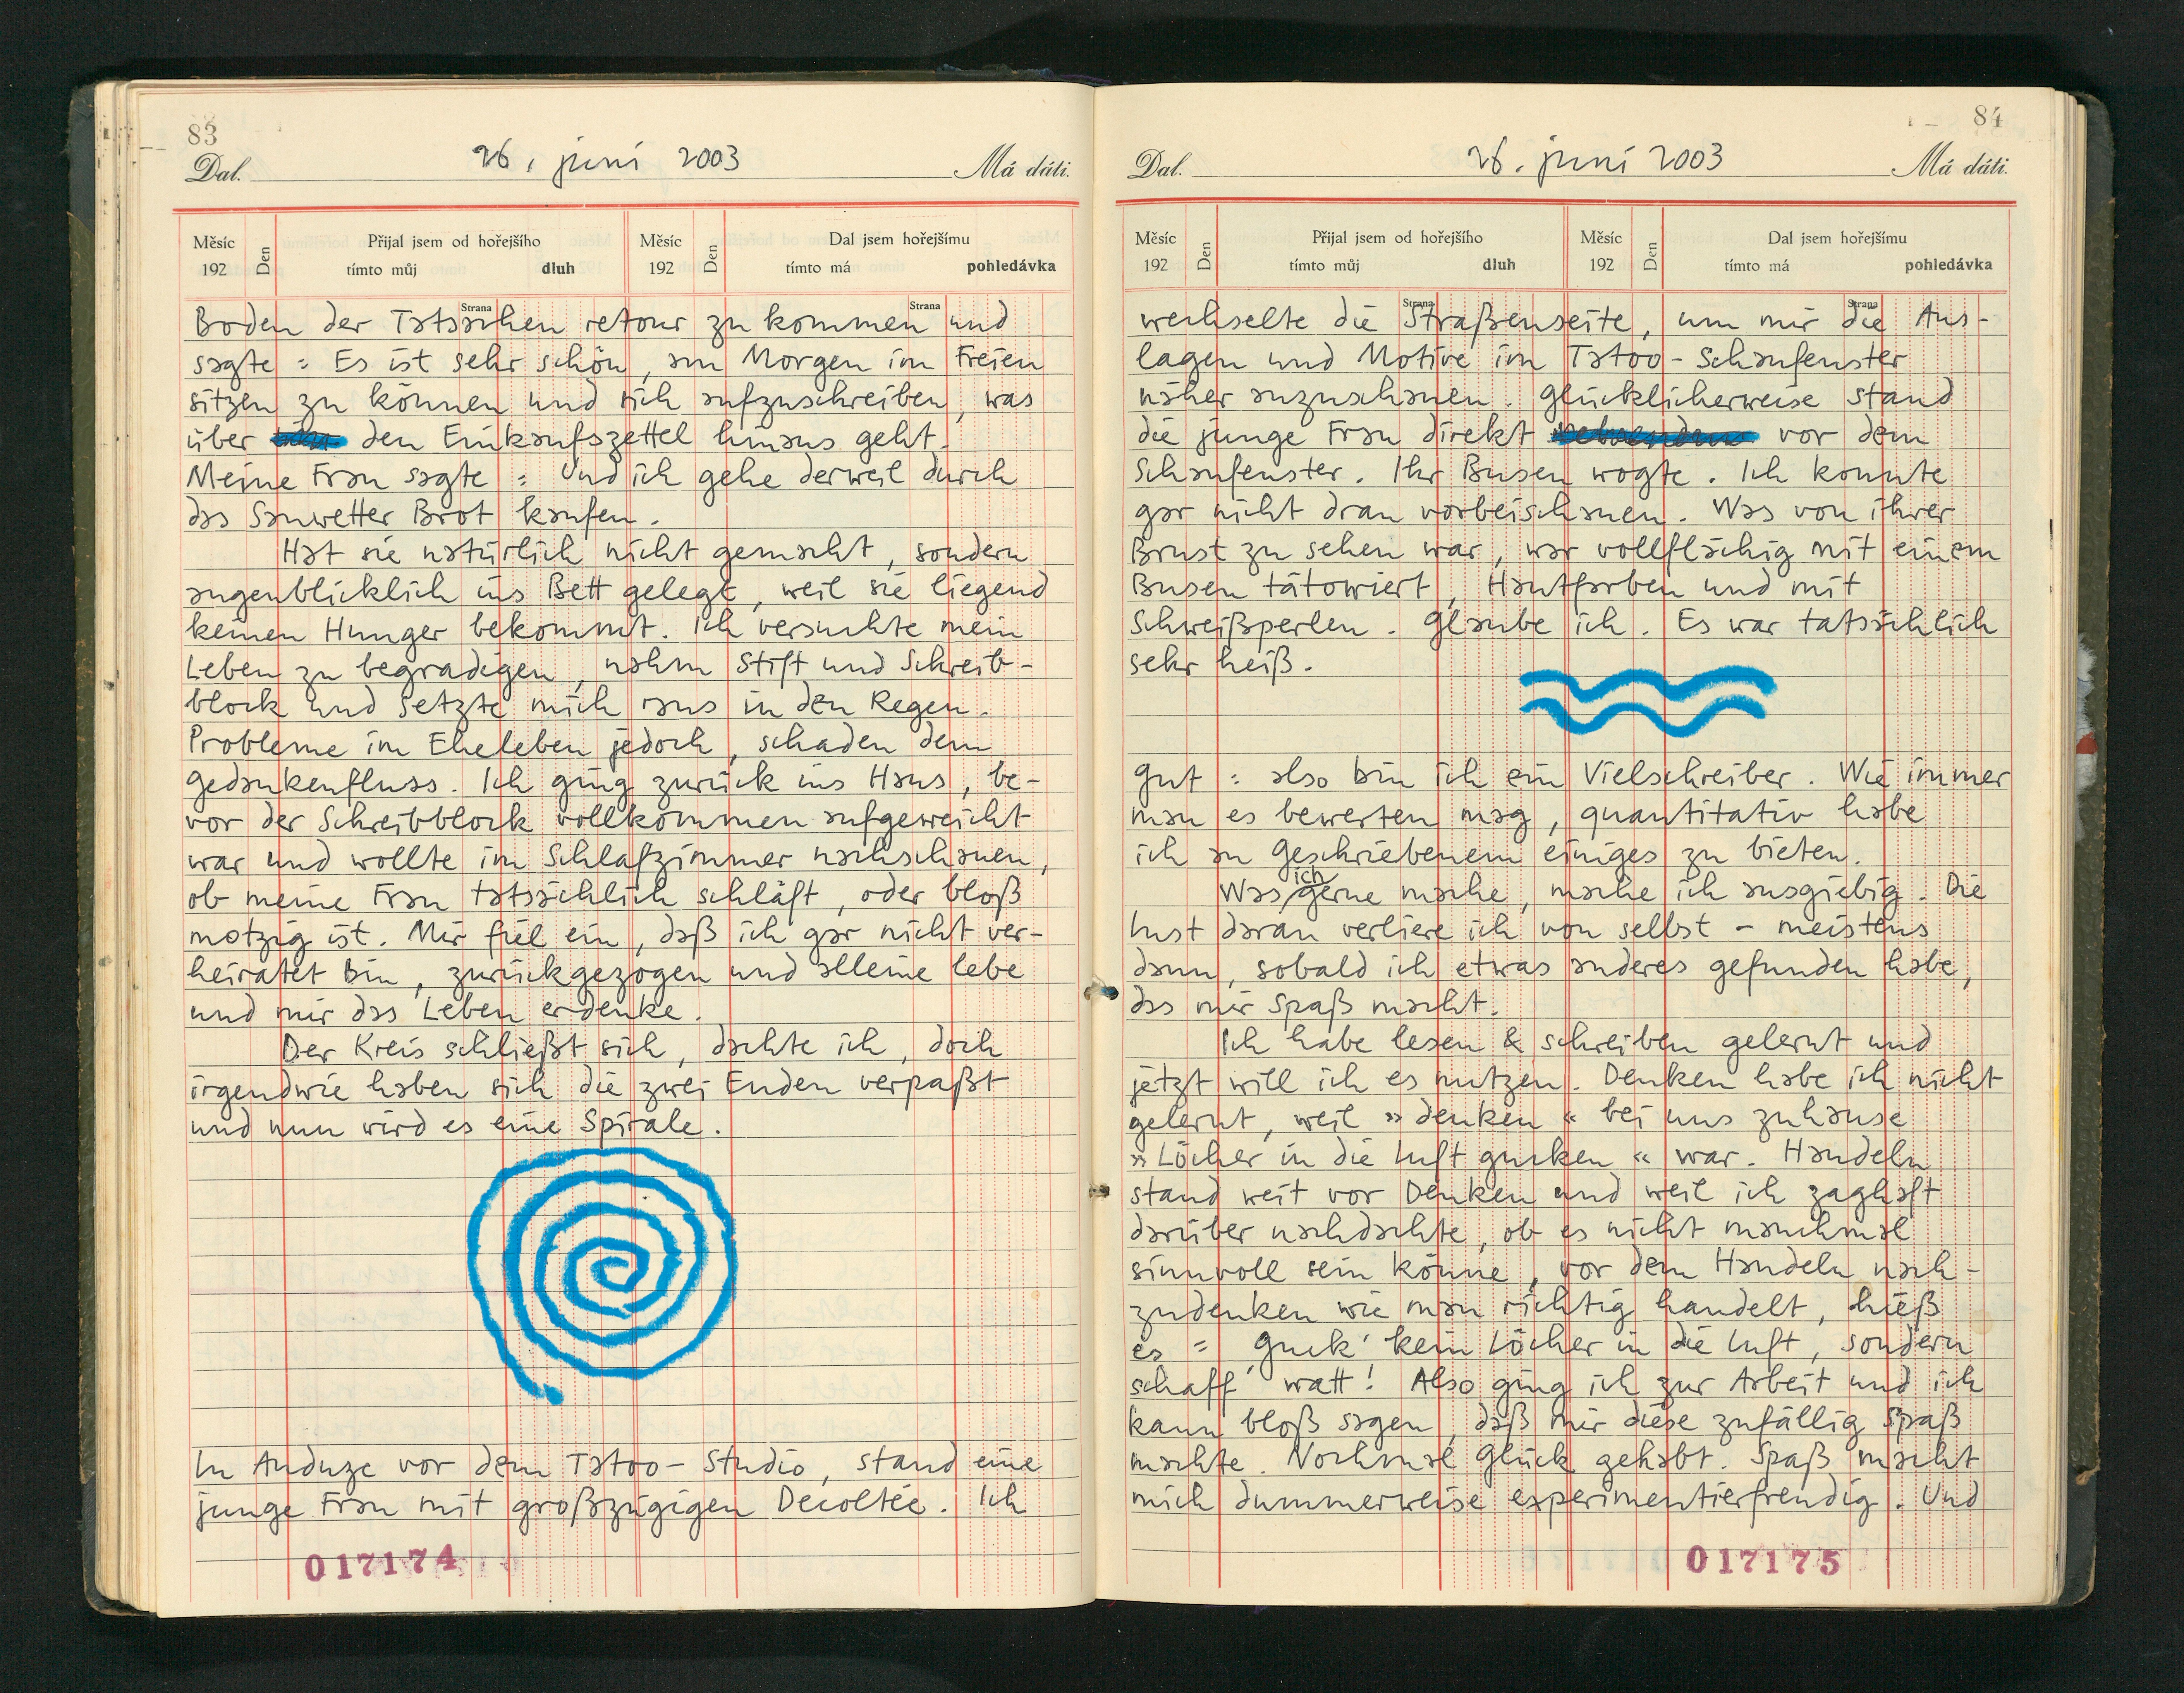 83
Dal. 26. juni 2003 Má dáti.
Měsíc 192 Den Přijal jsem od hořejšího tímto můj dluh Měsíc 192 Den Dal jsem hořejšímu tímto má pohledávka
Strana Strana
Boden der Tatsachen retour zu kommen und
sagte: Es ist sehr schön, am Morgen im Freien
sitzen zu können und sich aufzuschreiben, was
über den Einkaufszettel hinaus geht.
Meine Frau sagte: Und ich gehe derweil durch
das Sauwetter Brot kaufen.
Hat sie natürlich nicht gemacht, sondern
augenblicklich ins Bett gelegt, weil sie liegend
keinen Hunger bekommt. Ich versuchte mein
Leben zu begradigen, nahm Stift und Schreib-
block und setzte mich raus in den Regen.
Probleme im Eheleben jedoch, schaden dem
Gedankenfluss. Ich ging zurück ins Haus, be-
vor der Schreibblock vollkommen aufgeweicht
war und wollte im Schlafzimmer nachschauen,
ob meine Frau tatsächlich schläft, oder bloß
motzig ist. Mir fiel ein, daß ich gar nicht ver-
heiratet bin, zurückgezogen und alleine lebe
und mir das Leben erdenke.
Der Kreis schließt sich, dachte ich, doch
irgendwie haben sich die zwei Enden verpaßt
und nun wird es eine Spirale.
In Anduze vor dem Tatoo-Studio, stand eine
junge Frau mit großzügigen Decoltée. Ich
017174
84
Dal. 26. juni 2003 Má dáti.
Měsíc 192 Den Přijal jsem od hořejšího tímto můj dluh Měsíc 192 Den Dal jsem hořejšímu tímto má pohledávka
Strana Strana
wechselte die Straßenseite, um mir die Aus-
lagen und Motive im Tatoo-Schaufenster
näher anzuschauen. Glücklicherweise stand
die junge Frau direkt vor dem
Schaufenster. Ihr Busen wogte. Ich konnte
gar nicht dran vorbeischauen. Was von ihrer
Brust zu sehen war, war vollflächig mit einem
Busen tätowiert, Hautfarben und mit
Schweißperlen. Glaube ich. Es war tatsächlich
sehr heiß.
Gut: also bin ich ein Vielschreiber. Wie immer
man es bewerten mag, quantitativ habe
ich an Geschriebenem einiges zu bieten.
Was ich gerne mache, mache ich ausgiebig. Die
Lust daran verliere ich von selbst – meistens
dann, sobald ich etwas anderes gefunden habe,
das mir Spaß macht.
Ich habe lesen & schreiben gelernt und
jetzt will ich es nutzen. Denken habe ich nicht
gelernt, weil »denken« bei uns zuhause
»Löcher in die Luft gucken« war. Handeln
stand weit vor Denken und weil ich zaghaft
darüber nachdachte, ob es nicht manchmal
sinnvoll sein könne, vor dem Handeln nach-
zudenken wie man richtig handelt, hieß
es: Guck' kein Löcher in die Luft, sondern
schaff' watt! Also ging ich zur Arbeit und ich
kann bloß sagen, daß mir diese zufällig Spaß
machte. Nochmal Glück gehabt. Spaß macht
mich dummerweise experimentierfreudig. Und
017175